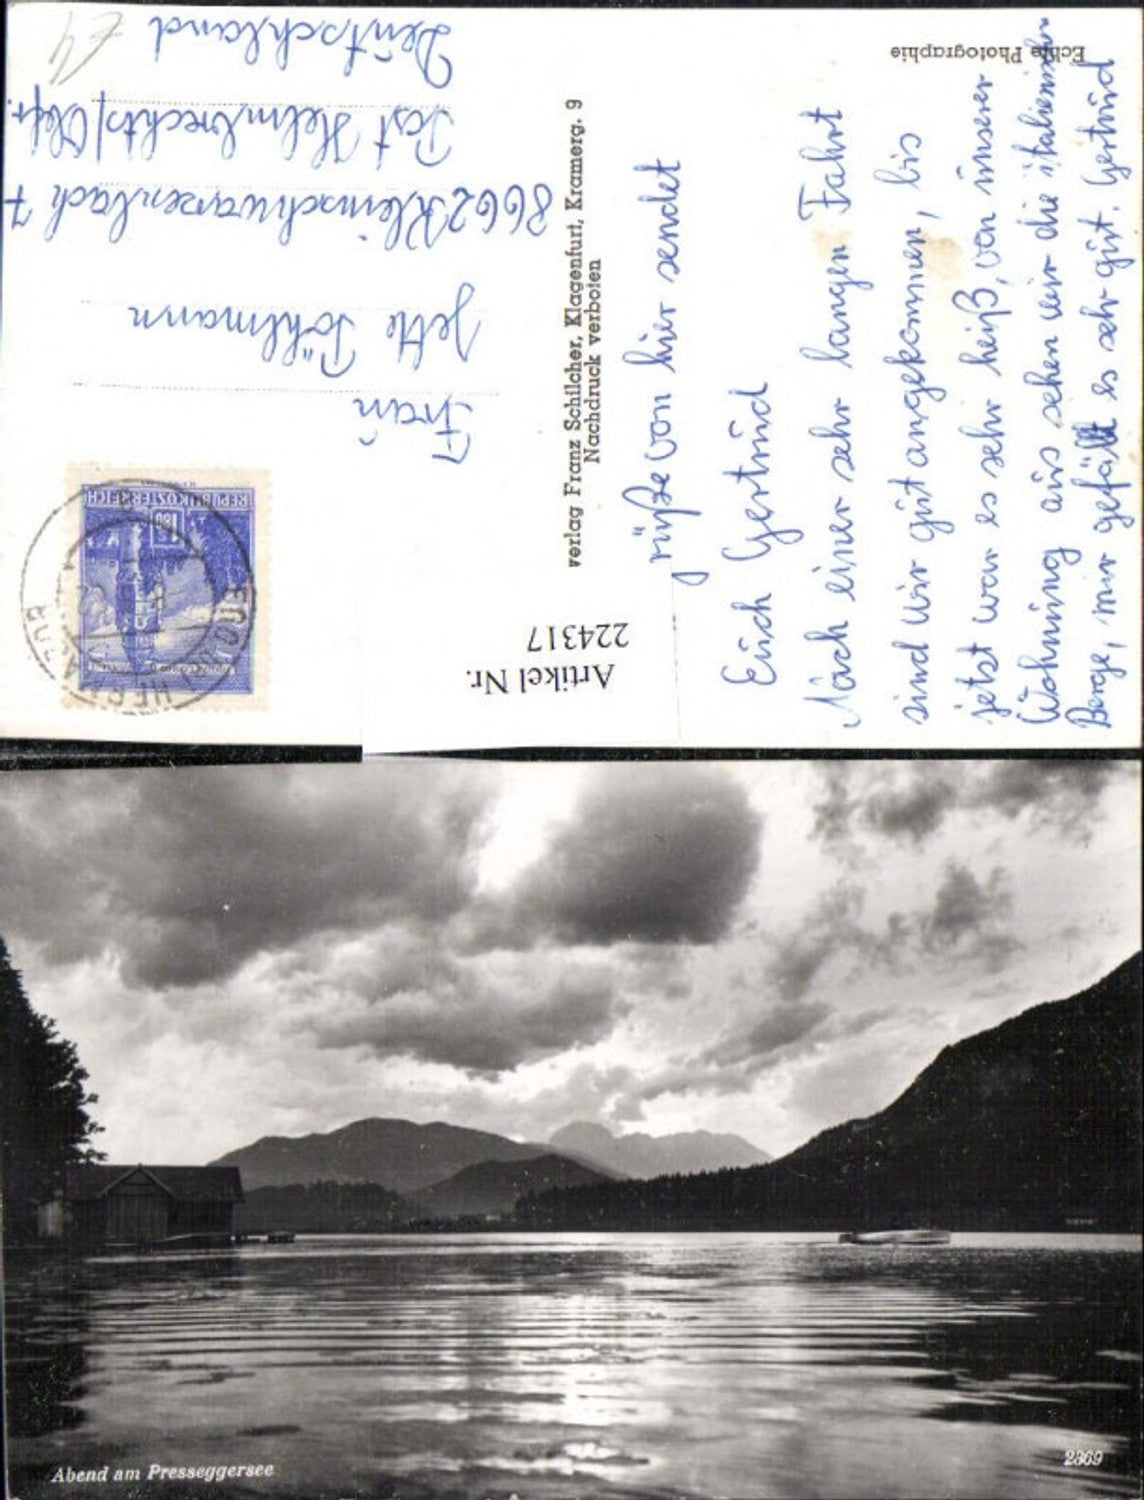 Echte Photographie
Grüße von hier sendet
Euch Gertrud
Nach einer sehr langen Fahrt
sind wir gut angekommen, bis
jetzt war es sehr heiß, von unserer
Wohnung aus sehen wir die italienischen
Berge, mir gefällt es sehr gut. Gertrud
verlag Franz Schilcher, Klagenfurt, Kramerg. 9
Nachdruck verboten
REPUBLIK ÖSTERREICH
1.80
HERMAGOR
Frau
Jette Pöhlmann
8662 Kleinschwarzenbach 7
Post Helmbrechts/Obfr.
Deutschland
Artikel Nr.
224317
Abend am Presseggersee
2369